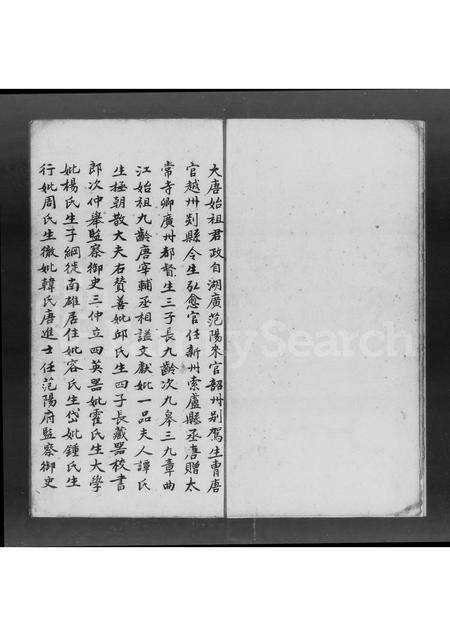 大唐始祖君政自湖廣范陽來官韶州别駕生冑唐
官越州剡縣令生弘愈官任新州索盧縣丞唐贈太
常寺卿廣州都督生三子長九齡次九皋三九章曲
江始祖九齡唐宰輔丞相謚文獻妣一品夫人譚氏
生極朝散大夫右贊善妣邱氏生四子長藏器校書
郎次仲舉監察御史三仲立四英器妣霍氏生大學
妣楊氏生子綱徙南雄居住妣容氏生岱妣鍾氏生
行妣周氏生徽妣韓氏唐進士任范陽府監察御史